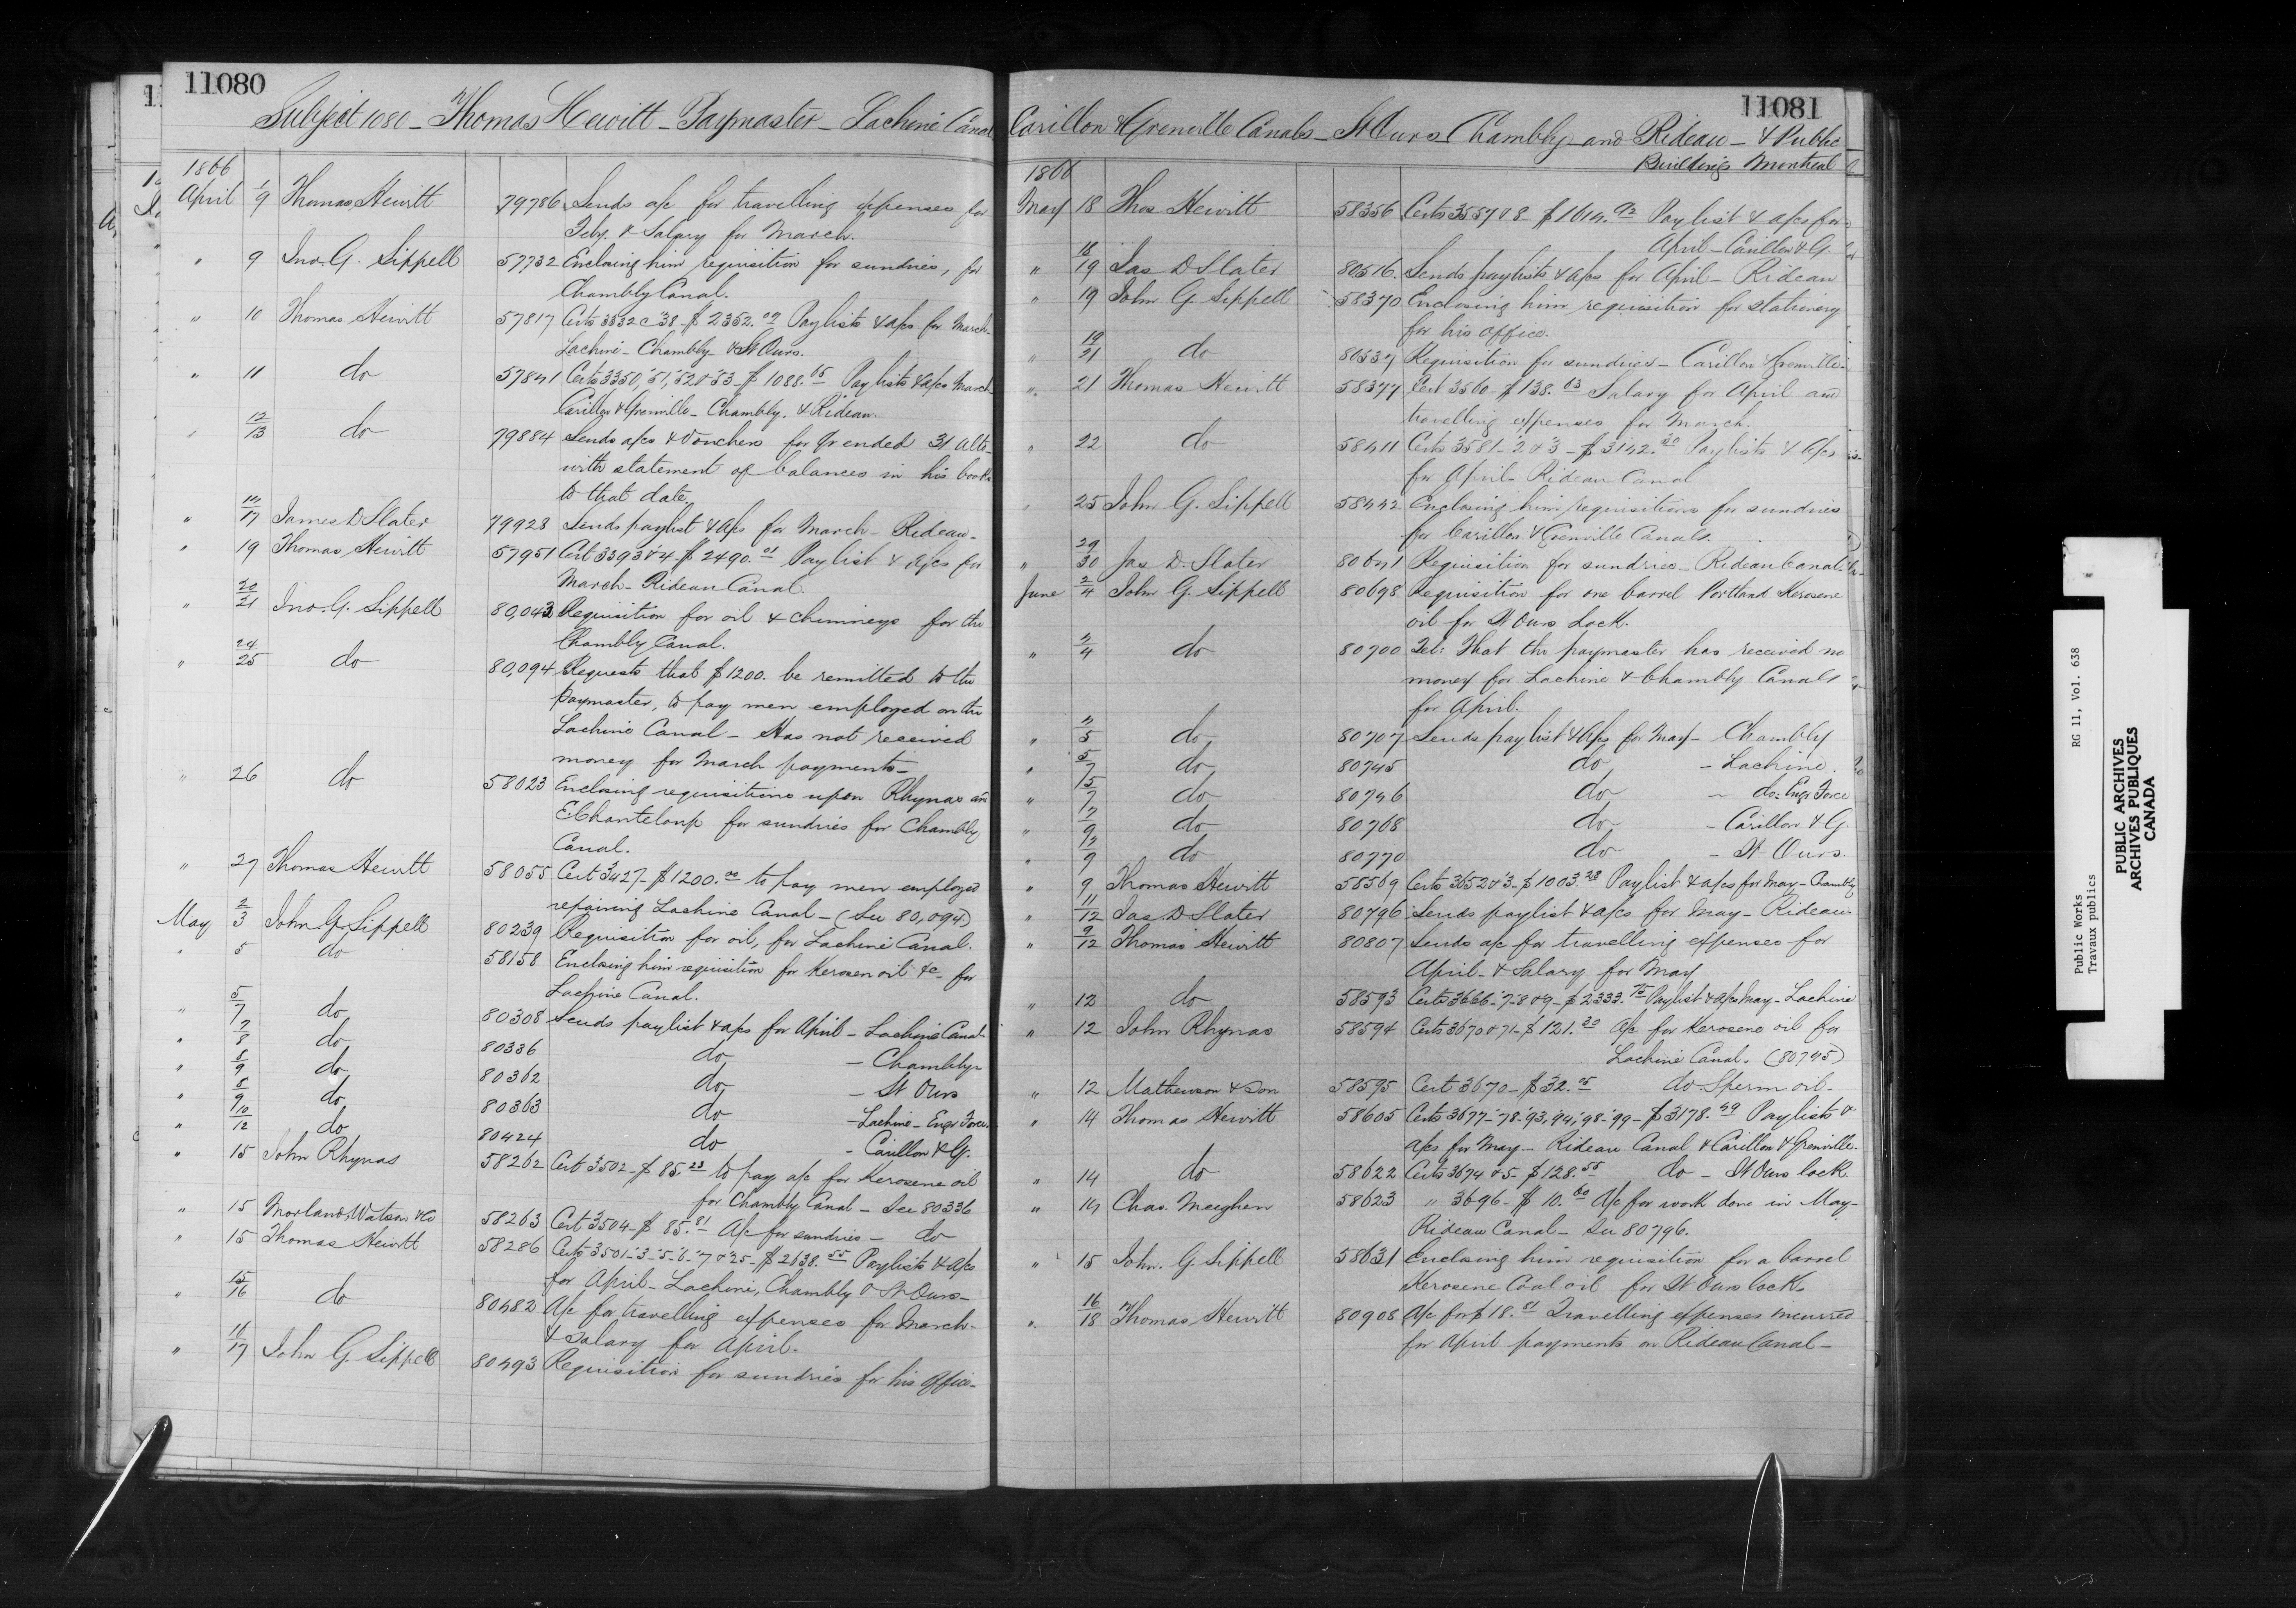 11080
Subject 1080 - Thomas Hewitt - Paymaster - Lachine Canal
1866
April 1/9 Thomas Hewitt 79786 Sends a/c for travelling expenses for
Feby. & Salary for March.
" 9 Jno. G. Sippell 57732 Enclosing him requisition for sundries, for
Chambly Canal.
" 10 Thomas Hewitt 57817 Certs 3332 @ 38 - $2352.09 Paylists & a/cs for March
Lachine - Chambly & St Ours.
" 11 do 57841 Certs 3350, 51, 52 & 53 - $1088.65 Paylists & a/cs March
Carillon & Grenville - Chambly. & Rideau
" 12/13 do 79884 Sends a/cs & Vouchers for Qr ended 31 Ulto
with statement of balances in his books
to that date.
" 14/17 James D Slater 79923 Sends paylist & a/cs for March - Rideau -
" 19 Thomas Hewitt 57951 Cert 3393 & 4 $2490.01 Paylist & a/cs for
March - Rideau Canal.
" 20/21 Jno. G. Sippell 80,043 Requisition for oil & chimneys for the
Chambly Canal.
" 24/25 do 80,094 Requests that $1200. be remitted to the
paymaster, to pay men employed on the
Lachine Canal - Has not received
money for March payments -
" 26 do 58023 Enclosing requisitions upon Rhynas and
E Chanteloup for sundries for Chambly
Canal.
" 27 Thomas Hewitt 58055 Cert 3427 - $1200.00 to pay men employed
repairing Lachine Canal - (See 80,094)
May 2/3 John G. Sippell 80239 Requisition for oil, for Lachine Canal.
" 5 do 58158 Enclosing him requisition for Kerosen oil &c - for
Lachine Canal.
" 5/7 do 80308 Sends paylist & a/cs for April - Lachine Canal
" 7/8 do 80336 do - Chambly -
" 8/9 do 80362 do - St Ours
" 8/9 do 80363 do - Lachine - Engr Force
" 10/12 do 80424 do - Carillon & G.
" 15 John Rhynas 58262 Cert 3502 - $85.23 to pay a/c for Kerosene oil
for Chambly Canal - See 80336
" 15 Morland, Watson & Co 58263 Cert 3504 - $85.81 A/c for sundries - do
" 15 Thomas Hewitt 58286 Certs 3501-3-5-6-7 & 25 - $2638.55 Paylists & a/cs
for April - Lachine, Chambly & St Ours -
" 15/16 do 80482 A/c for travelling expenses for March -
& Salary for April.
" 16/17 John G. Sippell 80493 Requisition for sundries for his office -
11081
Carillon & Grenville Canals - St Ours Chambly and Rideau - & Public
Buildings Montreal
1866
May 18 Thos Hewitt 58356 Certs 3557 & 8 - $1614.92 Paylist & a/cs for
April - Carillon & G.
" 18/19 Jas D Slater 80516 Sends paylists & a/cs for April - Rideau
" 19 John G. Sippell 58370 Enclosing him requisition for stationery
for his office.
" 19/21 do 80537 Requisition for sundries - Carillon & Grenville
" 21 Thomas Hewitt 58377 Cert 3560 - $138.63 Salary for April and
travelling expenses for March.
" 22 do 58411 Certs 3581-2 & 3 - $3142.30 Paylists & A/cs
for April - Rideau Canal
" 25 John G. Sippell 58442 Enclosing him requisitions for sundries
for Carillon & Grenville Canals.
" 29/30 Jas D. Slater 80641 Requisition for sundries - Rideau Canal
June 2/4 John G. Sippell 80698 Requisition for one barrel Portland Kerosene
oil for St Ours Lock.
" 2/4 do 80700 Tel: That the paymaster has received no
money for Lachine & Chambly Canals
for April.
" 4/5 do 80707 Sends paylist & A/cs for May - Chambly
" 5/7 do 80745 do - Lachine.
" 5/7 do 80746 do - do: Engr Force
" 7/9 do 80768 do - Carillon & G.
" 7/9 do 80770 do - St Ours.
" 9 Thomas Hewitt 58569 Certs 3652 & 3 - $1003.28 Paylist & a/cs for May - Chambly
" 11/12 Jas D Slater 80796 Sends paylist & a/cs for May - Rideau
" 9/12 Thomas Hewitt 80807 Sends a/c for travelling expenses for
April - & Salary for May
" 12 do 58593 Certs 3666-7-8 & 9 - $2333.75 Paylist & a/cs May - Lachine
" 12 John Rhynas 58594 Certs 3670 & 71 - $121.30 A/c for Kerosene oil for
Lachine Canal. (80745)
" 12 Mathewson & Son 58595 Cert 3670 - $32.05 do Sperm oil -
" 14 Thomas Hewitt 58605 Certs 3677-78-93, 94, 98-99 - $3178.49 Paylists &
a/cs for May - Rideau Canal & Carillon & Grenville
" 14 do 58622 Certs 3674 & 5 - $128.55 do - St Ours lock
" 14 Chas. Meighen 58623 " 3696 - $10.60 A/c for work done in May -
Rideau Canal - See 80796.
" 15 John. G. Sippell 58631 Enclosing him requisition for a barrel
Kerosene Coal oil for St Ours lock.
" 16/18 Thomas Hewitt 80908 A/c for $18.01 Travelling expenses incurred
for April payments on Rideau Canal -
Public Works RG 11, Vol. 638
Travaux publics
PUBLIC ARCHIVES
ARCHIVES PUBLIQUES
CANADA